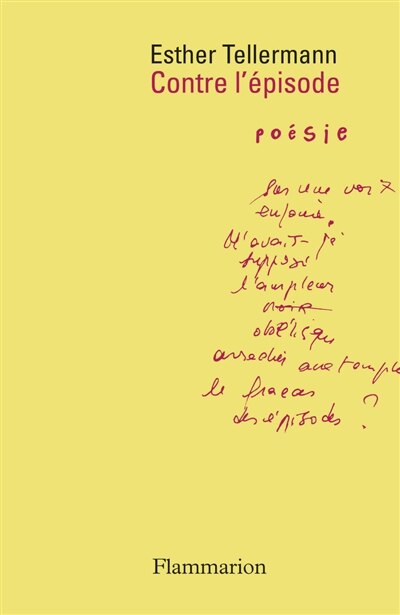 Esther Tellermann
Contre l'épisode
poésie
Sur une voix
enfouie.
N'avait-je
supposé
l'ampleur
noire
obélique
arracher aux temples
le fracas
des épisodes ?
Flammarion